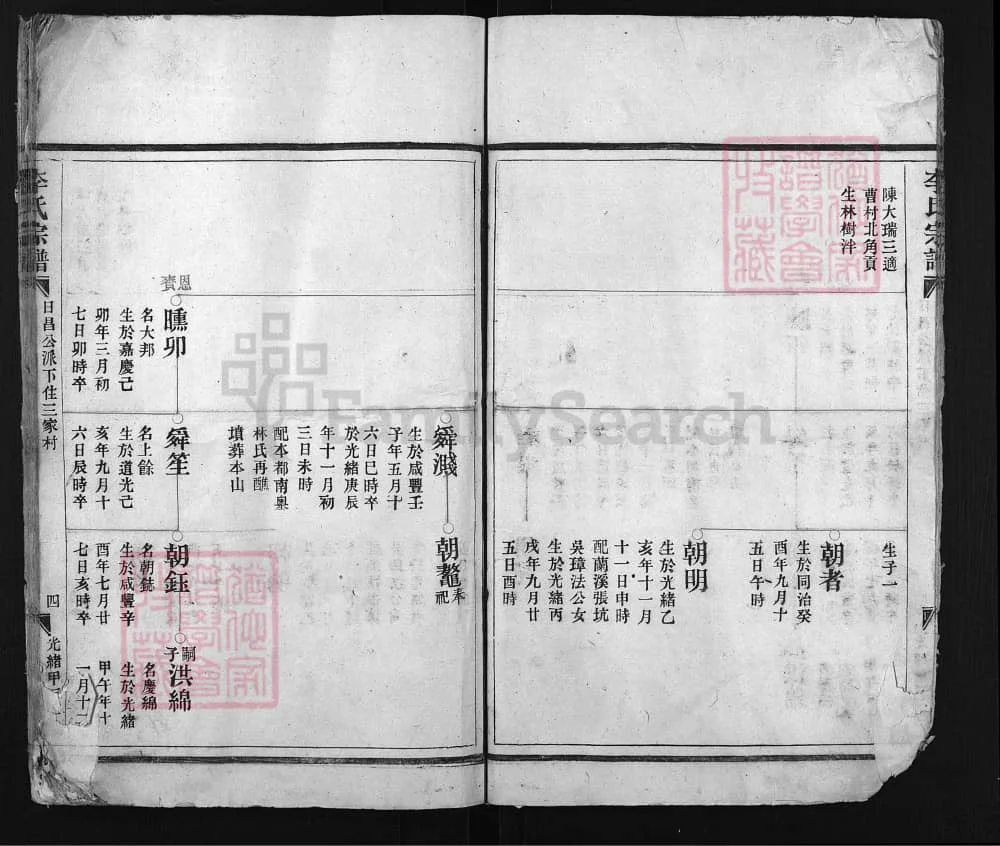 李氏宗譜
陳大瑞三適
曹村北角貢
生林樹泮
生子一
朝者
生於同治癸
酉年九月十
五日午時
朝明
生於光緒乙
亥年十一月
十一日申時
配蘭溪張坑
吳璋法公女
生於光緒丙
戌年九月廿
五日酉時
舜濺
生於咸豐壬
子年五月十
六日巳時卒
於光緒庚辰
年十一月初
三日未時
配本都南㬎
林氏再醮
墳葬本山
朝鼇
奉祀
恩賚
曛卯
名大邦
生於嘉慶己
卯年三月初
七日卯時卒
舜笙
名上餘
生於道光己
亥年九月十
六日辰時卒
朝鈺
名朝鋕
生於咸豐辛
酉年七月廿
七日亥時卒
嗣子
洪綿
名慶綿
生於光緒
甲午年十
一月十二
李氏宗譜
日昌公派下住三家村
四
光緒甲
FamilySearch